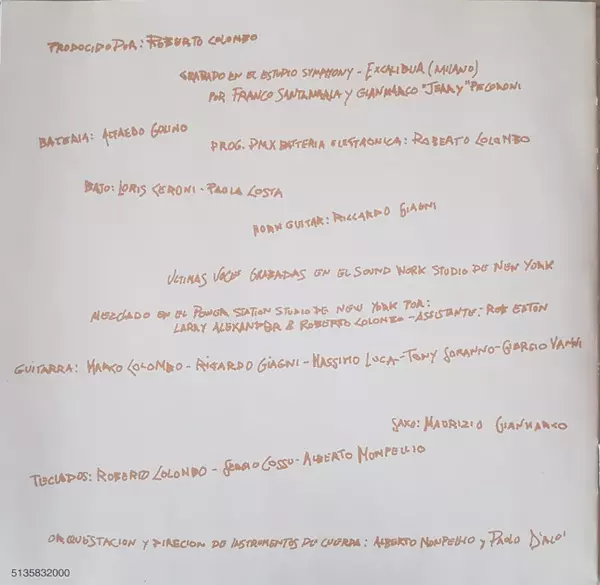 PRODOCIDO POR: ROBERTO COLOMBO
GRABADO EN EL ESTUDIO SYMPHONY - EXCALIBUR (MILANO)
POR FRANCO SANTAMARIA Y GIANMARCO "JERRY" PECORONI
BATERIA: ALFREDO GOLINO
PROG. DMX BATTERIA ELETTRONICA: ROBERTO COLOMBO
BAJO: LORIS CERONI - PAOLA COSTA
HORN GUITAR: RICCARDO GIAGNI
ULTIMAS VOCES GRABADAS EN EL SOUND WORK STUDIO DE NEW YORK
MEZCLADO EN EL POWER STATION STUDIO DE NEW YORK POR:
LARRY ALEXANDER & ROBERTO COLOMBO - ASSISTENTE: ROB EATON
GUITARRA: MARCO COLOMBO - RICCARDO GIAGNI - MASSIMO LUCA - TONY SORANNO - GIORGIO VANNI
SAXO: MAURIZIO GIANMARCO
TECLADOS: ROBERTO COLOMBO - SERGIO COSSU - ALBERTO MOMPELLIO
ORQUESTACION Y DIRECION DE INSTRUMENTOS DE CUERDA: ALBERTO MOMPELLIO y PAOLO
5135832000